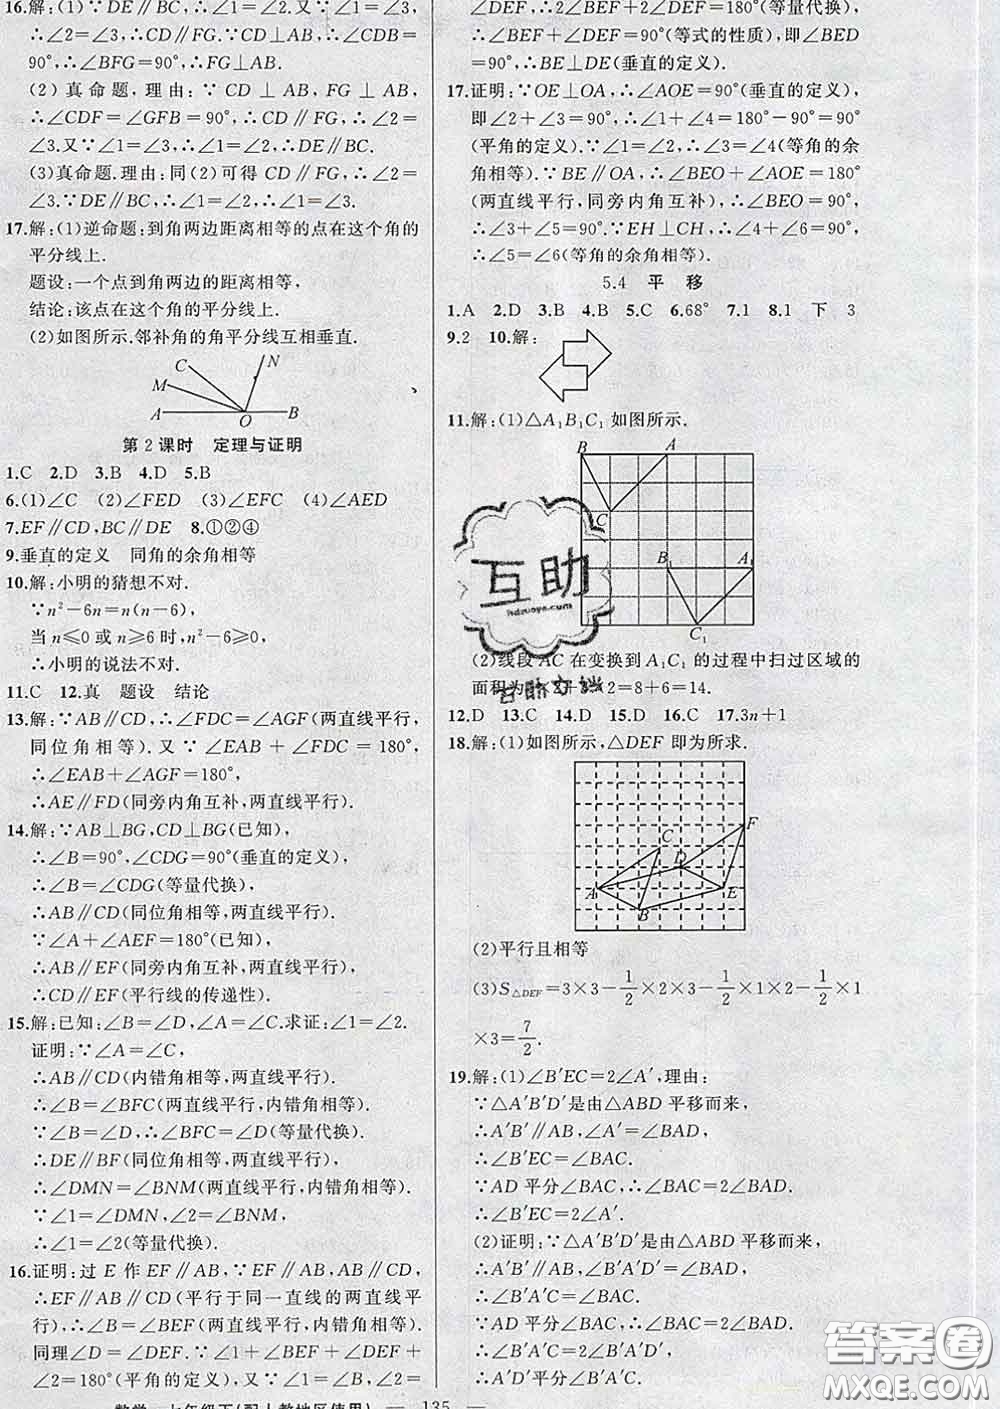 16.解:(1)∵DE∥BC,∴∠1=∠2.又∵∠1=∠3,
∴∠2=∠3,∴CD∥FG.∵CD⊥AB,∴∠CDB=
90°,∴∠BFG=90°,∴FG⊥AB.
(2)真命题,理由:∵CD⊥AB,FG⊥AB,
∴∠CDF=∠GFB=90°,∴CD∥FG,∴∠2=
∠3.又∵∠1=∠3,∴∠1=∠2,∴DE∥BC.
(3)真命题.理由:同(2)可得CD∥FG,∴∠2=
∠3.∵DE∥BC,∴∠1=∠2,∴∠1=∠3.
17.解:(1)逆命题:到角两边距离相等的点在这个角的
平分线上.
题设:一个点到角两边的距离相等,
结论:该点在这个角的平分线上.
(2)如图所示.邻补角的角平分线互相垂直.
C
N
M
A
O
B
第2课时 定理与证明
1.C 2.D 3.B 4.D 5.B
6.(1)∠C (2)∠FED (3)∠EFC (4)∠AED
7.EF∥CD,BC∥DE 8.①②④
9.垂直的定义 同角的余角相等
10.解:小明的猜想不对.
∵n²-6n=n(n-6),
当n≤0或n≥6时,n²-6n≥0,
∴小明的说法不对.
11.C 12.真 题设 结论
13.解:∵AB∥CD,∴∠FDC=∠AGF(两直线平行,
同位角相等).又∵∠EAB+∠FDC=180°,
∴∠EAB+∠AGF=180°,
∴AE∥FD(同旁内角互补,两直线平行).
14.解:∵AB⊥BG,CD⊥BG(已知),
∴∠B=90°,∠CDG=90°(垂直的定义),
∴∠B=∠CDG(等量代换),
∴AB∥CD(同位角相等,两直线平行),
∵∠A+∠AEF=180°(已知),
∴AB∥EF(同旁内角互补,两直线平行),
∴CD∥EF(平行线的传递性).
15.解:已知:∠B=∠D,∠A=∠C.求证:∠1=∠2.
证明:∵∠A=∠C,
∴AB∥CD(内错角相等,两直线平行).
∴∠B=∠BFC(两直线平行,内错角相等).
∵∠B=∠D,∴∠BFC=∠D(等量代换).
∴DE∥BF(同位角相等,两直线平行).
∴∠DMN=∠BNM(两直线平行,内错角相等).
∵∠1=∠DMN,∠2=∠BNM,
∴∠1=∠2(等量代换).
16.证明:过E作EF∥AB,∵EF∥AB,AB∥CD,
∴EF∥AB∥CD(平行于同一直线的两直线平
行),∴∠B=∠BEF(两直线平行,内错角相等).
同理∠D=∠DEF.∵∠1+∠BEF+∠DEF+
∠2=180°(平角的定义),又∵∠1=∠B,∠2=
∠DEF,∴2∠BEF+2∠DEF=180°(等量代换),
∴∠BEF+∠DEF=90°(等式的性质),即∠BED
=90°,∴BE⊥DE(垂直的定义).
17.证明:∵OE⊥OA,∴∠AOE=90°(垂直的定义),
即∠2+∠3=90°,∴∠1+∠4=180°-90°=90°
(平角的定义).又∵∠1=∠2,∴∠3=∠4(等角的余
角相等).∵BE∥OA,∴∠BEO+∠AOE=180°
(两直线平行,同旁内角互补),∴∠BEO=90°,
∴∠3+∠5=90°.∵EH⊥CH,∴∠4+∠6=90°,
∴∠5=∠6(等角的余角相等).
5.4 平 移
1.A 2.D 3.B 4.B 5.C 6.68° 7.1 8.1 下 3
9.2 10.解:
11.解:(1)△A₁B₁C₁如图所示.
B
A
C
B₁
A₁
C₁
(2)线段AC在变换到A₁C₁的过程中扫过区域的
×2=8+6=14.
12.D 13.C 14.D 15.D 16.C 17.3n+1
18.解:(1)如图所示,△DEF即为所求.
F
C
D
A
E
B
(2)平行且相等
(3)S△DEF=3×3-1/2×2×3-1/2×1×2-1/2×1
×3=7/2.
19.解:(1)∠B′EC=2∠A′,理由:
∵△A′B′D′是由△ABD平移而来,
∴A′B′∥AB,∠A′=∠BAD,
∴∠B′EC=∠BAC.
∵AD平分∠BAC,∴∠BAC=2∠BAD.
∴∠B′EC=2∠A′.
(2)证明:∵△A′B′D′是由△ABD平移而来,
∴A′B′∥AB,∠B′A′D′=∠BAD,
∴∠B′A′C=∠BAC.
∵AD平分∠BAC,∴∠BAC=2∠BAD.
∴∠B′A′C=2∠B′A′D′,
∴A′D′平分∠B′A′C.
— 135 —
互助
hdzuoye.com
答案圈
MXQE.COM